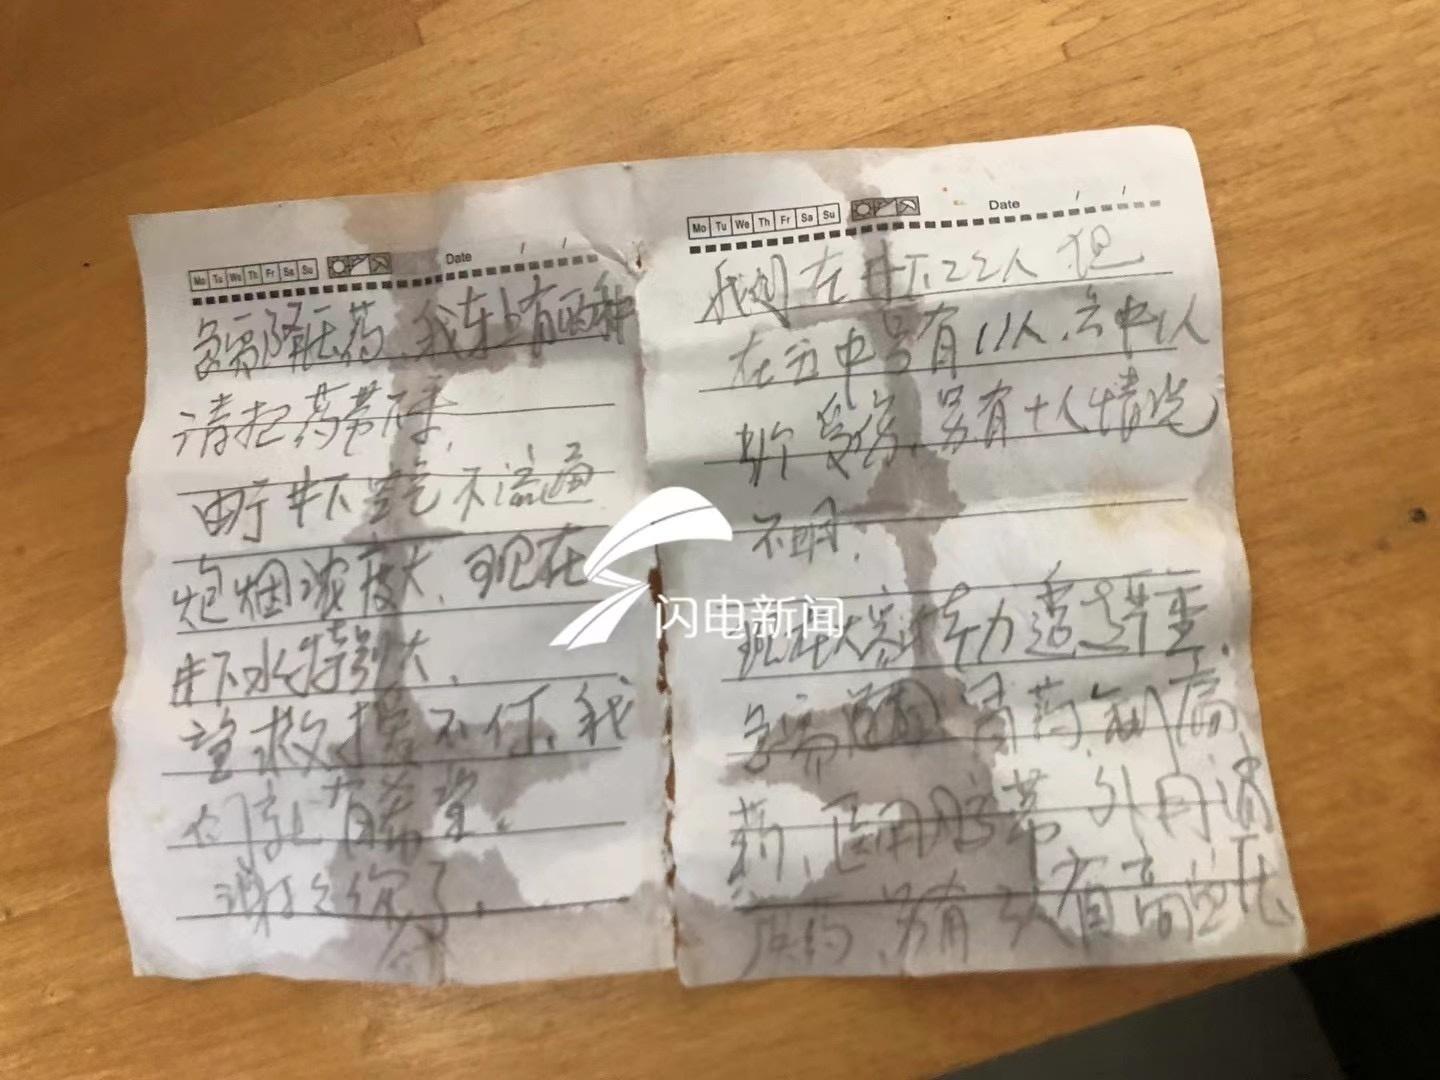 我们在井下22人 但
在五中号有11人,六中1人
受伤,另有十人情况
不明,
现在大部分体力透支严重.
急需 胃药,镇痛
药,医用胶带,外用消
炎药,另有 3人有高血压
急需降压药,我车上有两种
请把药带下来,
由于井下空气不流通
炮烟浓度大,现在
井下水特别大,
望救援不停,我
们就有希望.
谢谢你们了,
闪电新闻
Mo Tu We Th Fr Sa Su
Date
Mo Tu We Th Fr Sa Su
Date